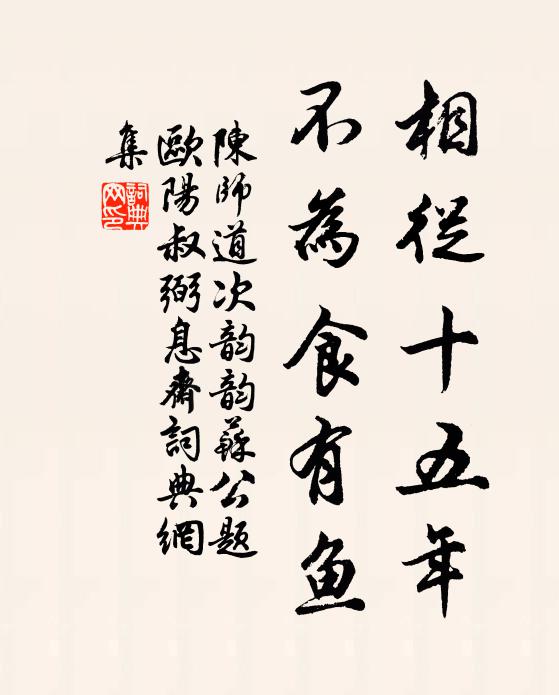 相從十五年
不為食有魚
陳師道次韵韵蘇公題
歐陽叔弼息齋詞典網
集
詞典
网印